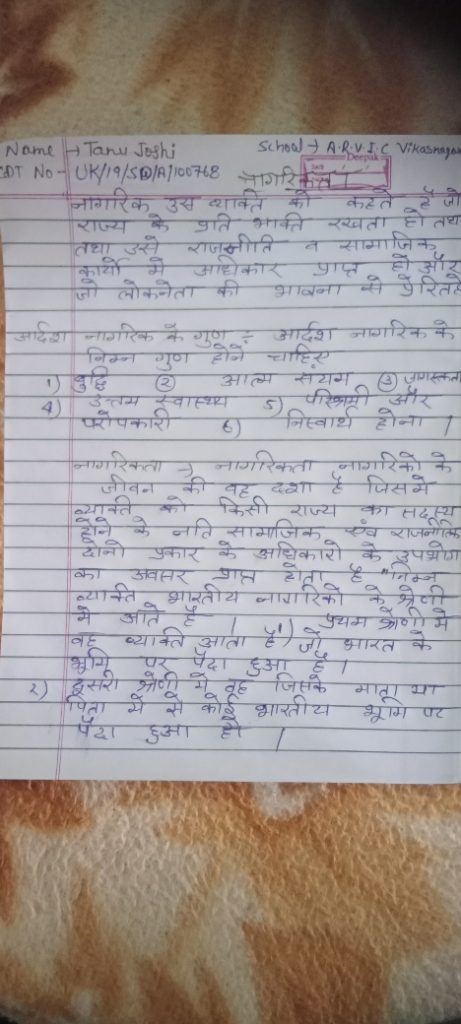 Name → Tanu Joshi School → A.R.V.I.C Vikasnagar
CDT No - UK/19/SD/A/100768 Deepak
नागरिकता
नागरिक उस व्यक्ति को कहते है जो
राज्य के प्रति भक्ति रखता हो तथ
तथा उसे राजनीति व सामाजिक
कार्यो मे अधिकार प्राप्त हो और
जो लोकनेता की भावना से प्रेरित हो
आर्दश नागरिक के गुण ÷ आर्दश नागरिक के
निम्न गुण होने चाहिए
1) बुद्धि ② आत्म सयम ③ जागरूकता
4) उत्तम स्वास्थ्य 5) परिश्रमी और
परोपकारी 6) निस्वार्थ होना |
नागरिकता → नागरिकता नागरिको के
जीवन की वह दशा है जिसमे
व्यक्ति को किसी राज्य का सदस्य
होने के नति सामाजिक एवं राजनीतिक
दोनो प्रकार के अधिकारो के उपभोग
का अवसर प्राप्त होता है "निम्न
व्यक्ति भारतीय नागरिको के श्रेणी
मे आते है | प्रथम श्रेणी मे
वह व्यक्ति आता है 1) जो भारत के
भूमि पर पैदा हुआ है |
2) दूसरी श्रेणी मे वह जिसके माता या
पिता मे से कोई भारतीय भूमि पर
पैदा हुआ हो |